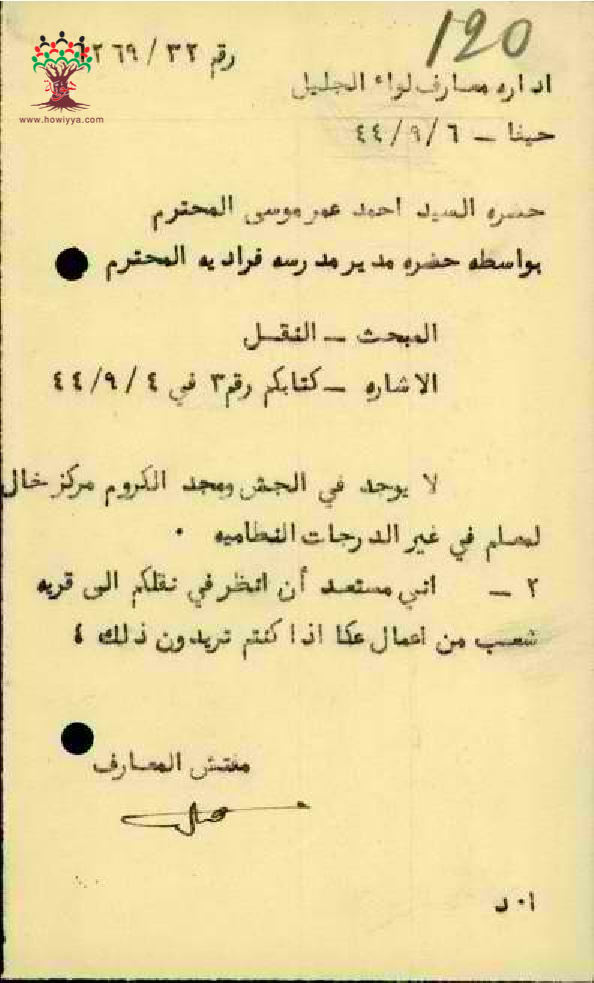 120
رقم ٣٢ / ٢٦٩
www.howiyya.com
اداره معارف لواء الجليل
حيفا – ٦/ ٩/ ٤٤
حضره السيد احمد عمر موسى المحترم
بواسطه حضره مدير مدرسه فراديه المحترم
المبحث – النقل
الاشاره – كتابكم رقم ٣ في ٤ /٩/ ٤٤
لا يوجد في الجش ومجد الكروم مركز خال
لمعلم في غير الدرجات النظاميه ٠
٢ – اني مستعد أن انظر في نقلكم الى قريه
شعب من اعمال عكا اذا كنتم تريدون ذلك ٤
مفتش المعارف
ا٠ د